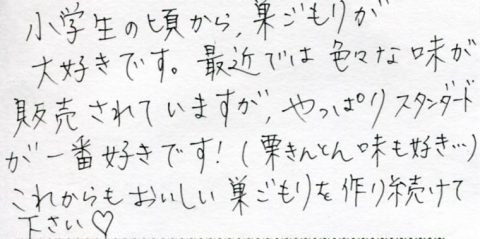 小学生の頃から、巣ごもりが
大好きです。最近では色々な味が
販売されていますが、やっぱりスタンダード
が一番好きです!(栗きんとん味も好き…)
これからもおいしい巣ごもりを作り続けて
下さい♡